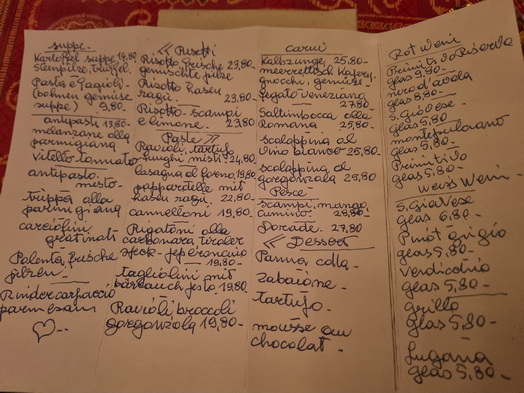 suppe.
Kartoffel suppe 14,80
Steinpilze, trüffel.
Pasta e fagioli.
(bohnen gemüse
suppe) 9,80.
antipasti 19,80-
melanzane alla
parmigiana
Vitello tonnato
antipasto
misto.
trippa alla
parmigiana
gratinati
Polenta, frische
pilze.
Rindercarpaccio
parmesan
♡..
<< Risotti
Risotto frische 23,80.
gemischte pilze
Risotto hasen
ragù. 23,80-
Risotto scampi
e limone. 23,80
Paste >>
Ravioli, tartufo
funghi misti 24,80,
lasagna al forno, 19,80
pappardelle mit
hasen ragù. 22,80-
cannelloni 19,80-
Rigatoni alla
carbonara tiroler
speck-
19,80-
tagliolini mit
bärlauch pesto. 19,80
Ravioli broccoli
gorgonzola 19,80-
carni
Kalbszunge, 25,80-
meerrettich
gnocchi, gemüse
fegato veneziana
27,80-
Saltimbocca alla
Romana 25,80-
scaloppina al
vino bianco 25,80-
scaloppina al
gorgonzola 25,80-
Pesce
scampi, mango,
cumino. 28,80-
Dorade. 27,80
<< Dessert
Panna cotta.
Zabaione-
tartufo-
mousse au
chocolat-
Rot Wein
Primitivo
glas 9,80-
nero d'avola
glas 8,80-
S. Giovese-
glas 5,80-
montepulciano
glas 5,80-
Primitivo
glas 5,80-
Weiss Wein-
S. Giovese
glas 6,80-
Pinot grigio
glas 5,80-
Verdicchio
glas 5,80-
grillo
glas 5,80-
Lugana
glas 5,80-